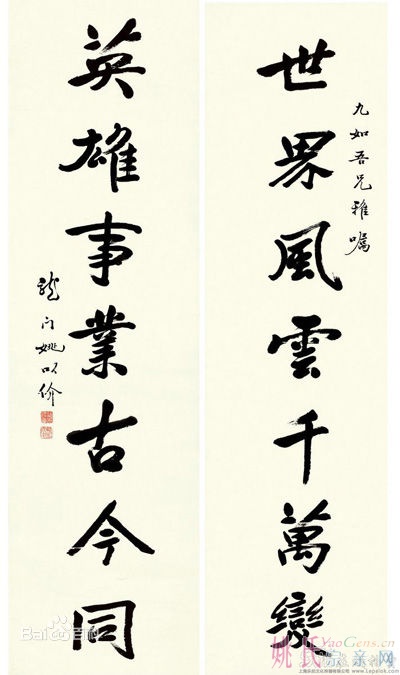 世界風雲千萬變
九如吾兄雅囑
英雄事業古今同
龍門姚以价
Bai百科
姚氏宗亲网
YaoGens.cn
www.Lepalok.com